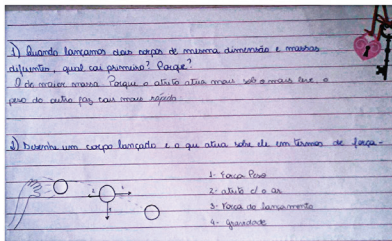 1) Quando lançamos dois corpos de mesma dimensão e massas
diferentes, qual cai primeiro? Porque?
O de maior massa Porque o atrito atua mais sob o mais leve, o
peso do outro faz cair mais rápido.
2) Desenhe um corpo lançado e o que atua sobre ele em termos de força.
1- Força Peso
2- atrito c/ o ar
3- Força do lançamento
4- gravidade